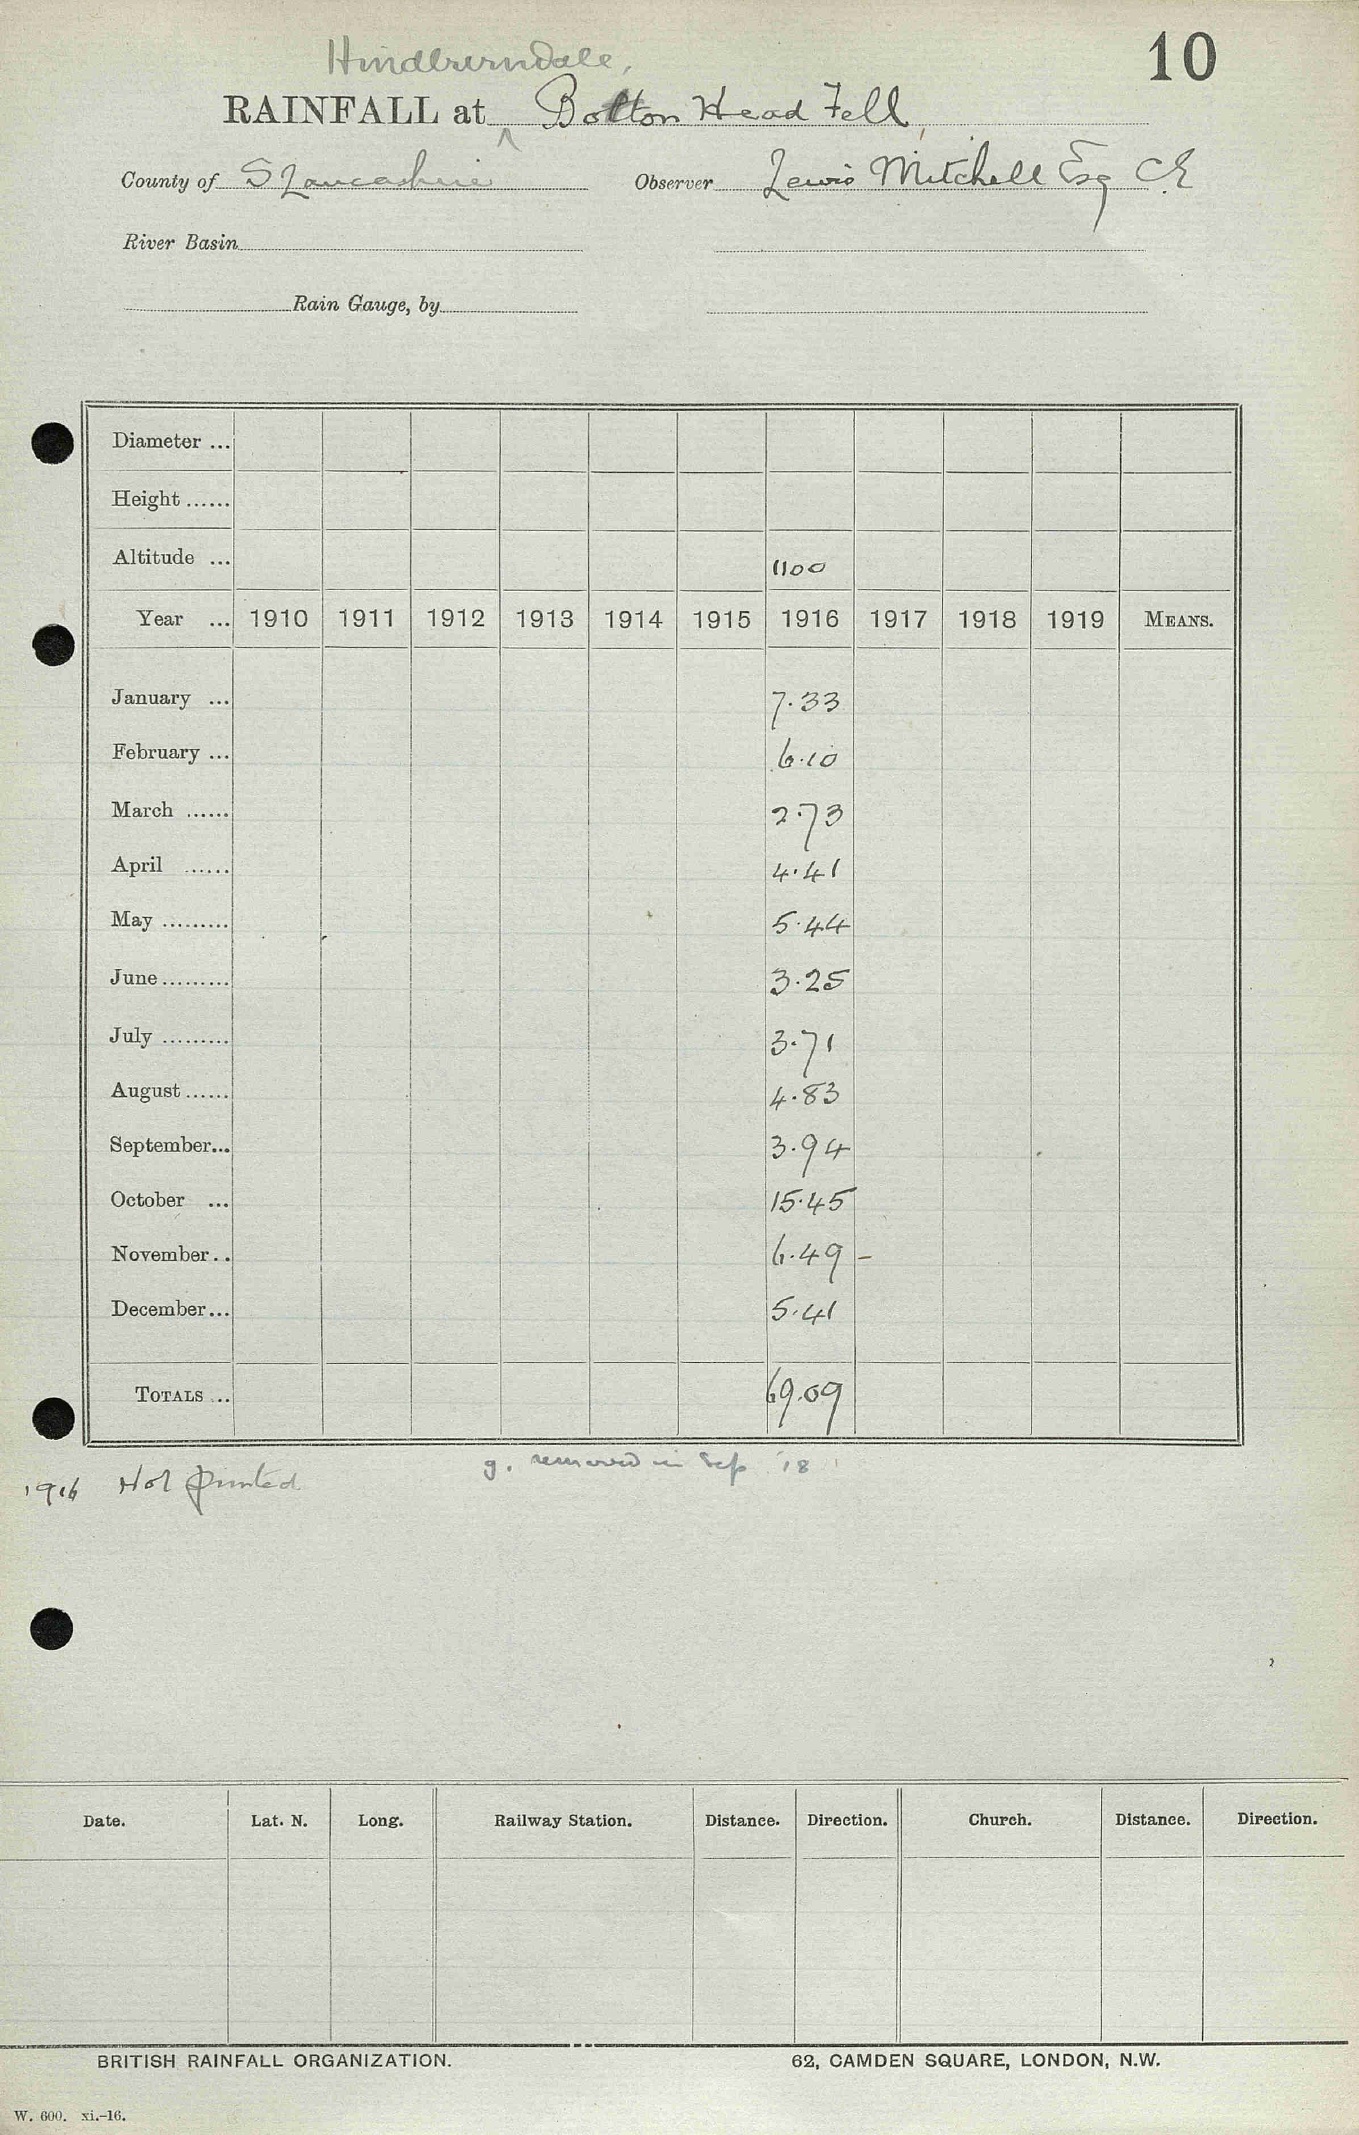 10
Hindburndale,
RAINFALL at Botton Head Fell,
County of S Lancashire Observer Lewis Mitchell Esq C.E
River Basin
Rain Gauge, by
Diameter ...
Height ......
Altitude ... 1100
Year ... 1910 1911 1912 1913 1914 1915 1916 1917 1918 1919 MEANS.
January ... 7.33
February ... 6.10
March ...... 2.73
April ...... 4.41
May ......... 5.44
June ......... 3.25
July ......... 3.71
August ...... 4.83
September... 3.94
October ... 15.45
November.. 6.49 –
December... 5.41
TOTALS ... 69.09
g. removed in Sep '18
1916 Not printed
Date. Lat. N. Long. Railway Station. Distance. Direction. Church. Distance. Direction.
BRITISH RAINFALL ORGANIZATION. 62, CAMDEN SQUARE, LONDON, N.W.
W. 600. xi.–16.